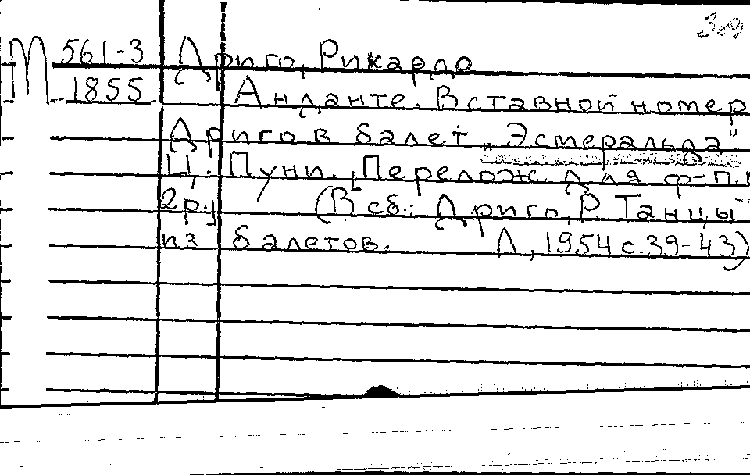 М 561-3 Дриго, Рикардо
1855 Анданте. Вставной номер
Дриго в балет „Эсмеральда"
Ц. Пуни. Перелож. для ф-п.
2р.] (В сб.: Дриго, Р. Танцы
из балетов. Л., 1954 с. 39-43)